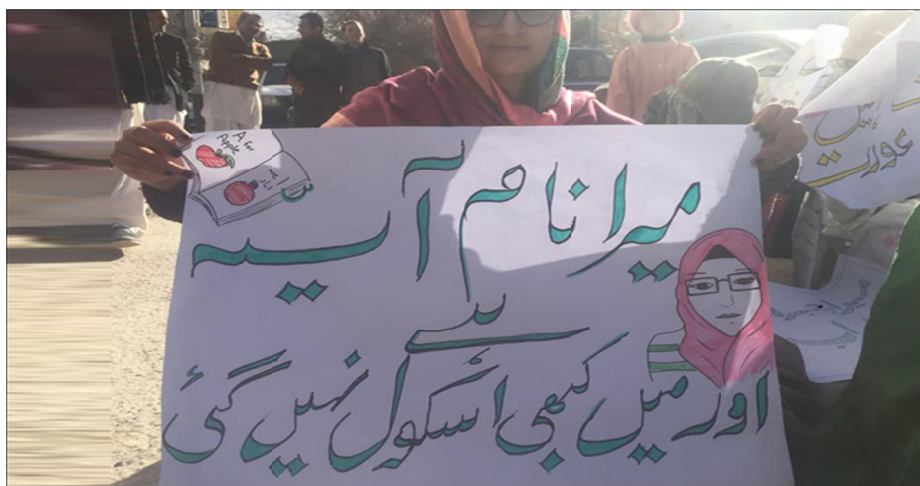 A For
Apple
میرا نام آسیہ
ہے
اور میں کبھی اسکول نہیں گئی
ہیں
عورت